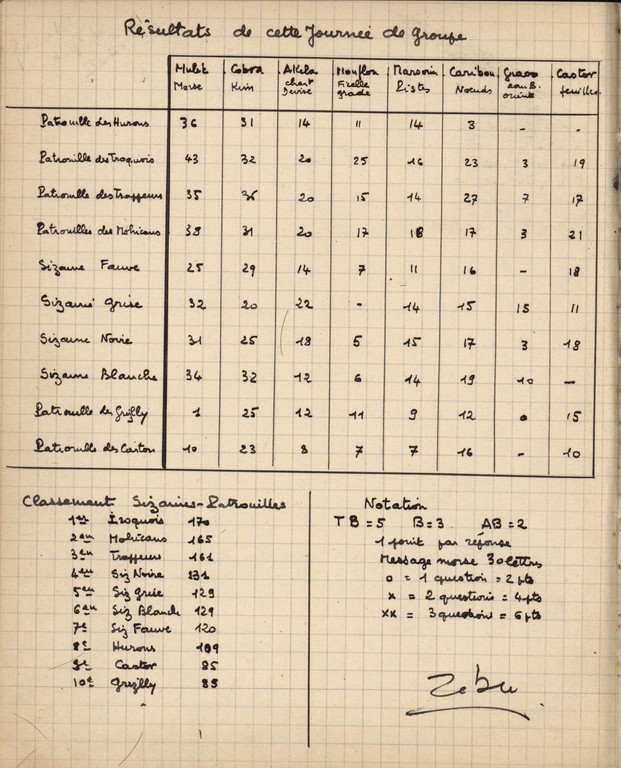 Résultats de cette Journée de Groupe
Mulot Cobra Akela Mouflon Marsouin Caribou Castor
Morse Kim chant Ficelle Pistes Noeuds feuilles
Devise grade
Patrouille des Hurons 36 31 14 11 14 3 - -
Patrouille des Iroquois 43 32 20 25 16 23 3 19
Patrouille des Trappeurs 35 36 20 15 14 27 7 17
Patrouilles des Mohicans 38 31 20 17 18 17 3 21
Sizaine Fauve 25 29 14 7 11 16 - 18
Sizaine grise 32 20 22 - 14 15 15 11
Sizaine Noire 31 25 18 5 15 17 3 18
Sizaine Blanche 34 32 12 6 14 19 10 -
Patrouille des Grizzly 1 25 12 11 9 12 0 15
Patrouille des Castors 10 23 8 7 7 16 - 10
Classement Sizaines-Patrouilles
1er Iroquois 170
2em Mohicans 165
3em Trappeurs 161
4em Siz Noire 131
5em Siz grise 129
6em Siz Blanche 129
7e Siz Fauve 120
8e Hurons 109
9e Castor 85
10e Grizzly 85
Notation
TB=5 B=3 AB=2
1 point par réponse
Message morse 30 lettres
o = 1 question = 2 pts
x = 2 questions = 4 pts
xx = 3 question = 6 pts
Zebu